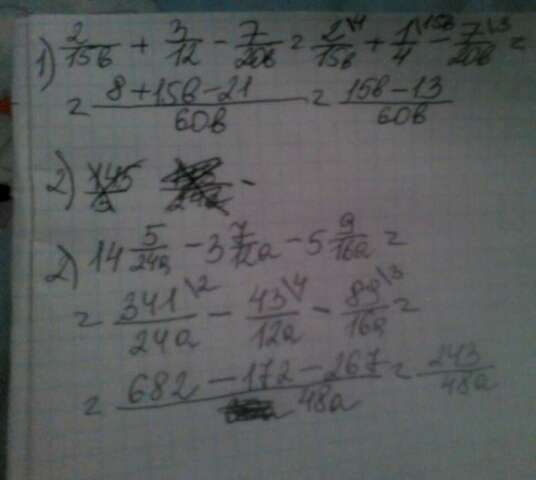 1) 2/15в + 3/12 - 7/20в = 2\4/15в + 1\15в/4 - 7\3/20в =
= 8+15в-21/60в = 15в-13/60в
2)
2) 14 5/24а - 3 7/12а - 5 9/16а =
= 341\2/24а - 43\4/12а - 89\3/16а =
= 682-172-267/48а = 243/48а